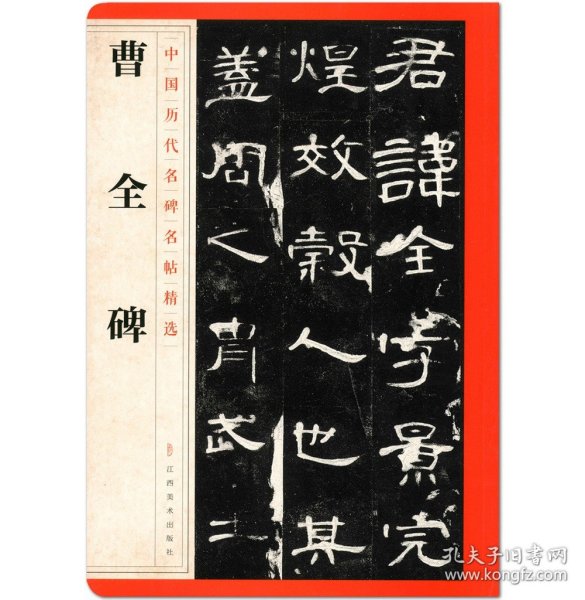 曹全碑
中国历代名碑名帖精选
江西美术出版社
君諱全字景完
煌效穀人也其
蓋周之胄武二
孔夫子旧书网
www.kongfz.com